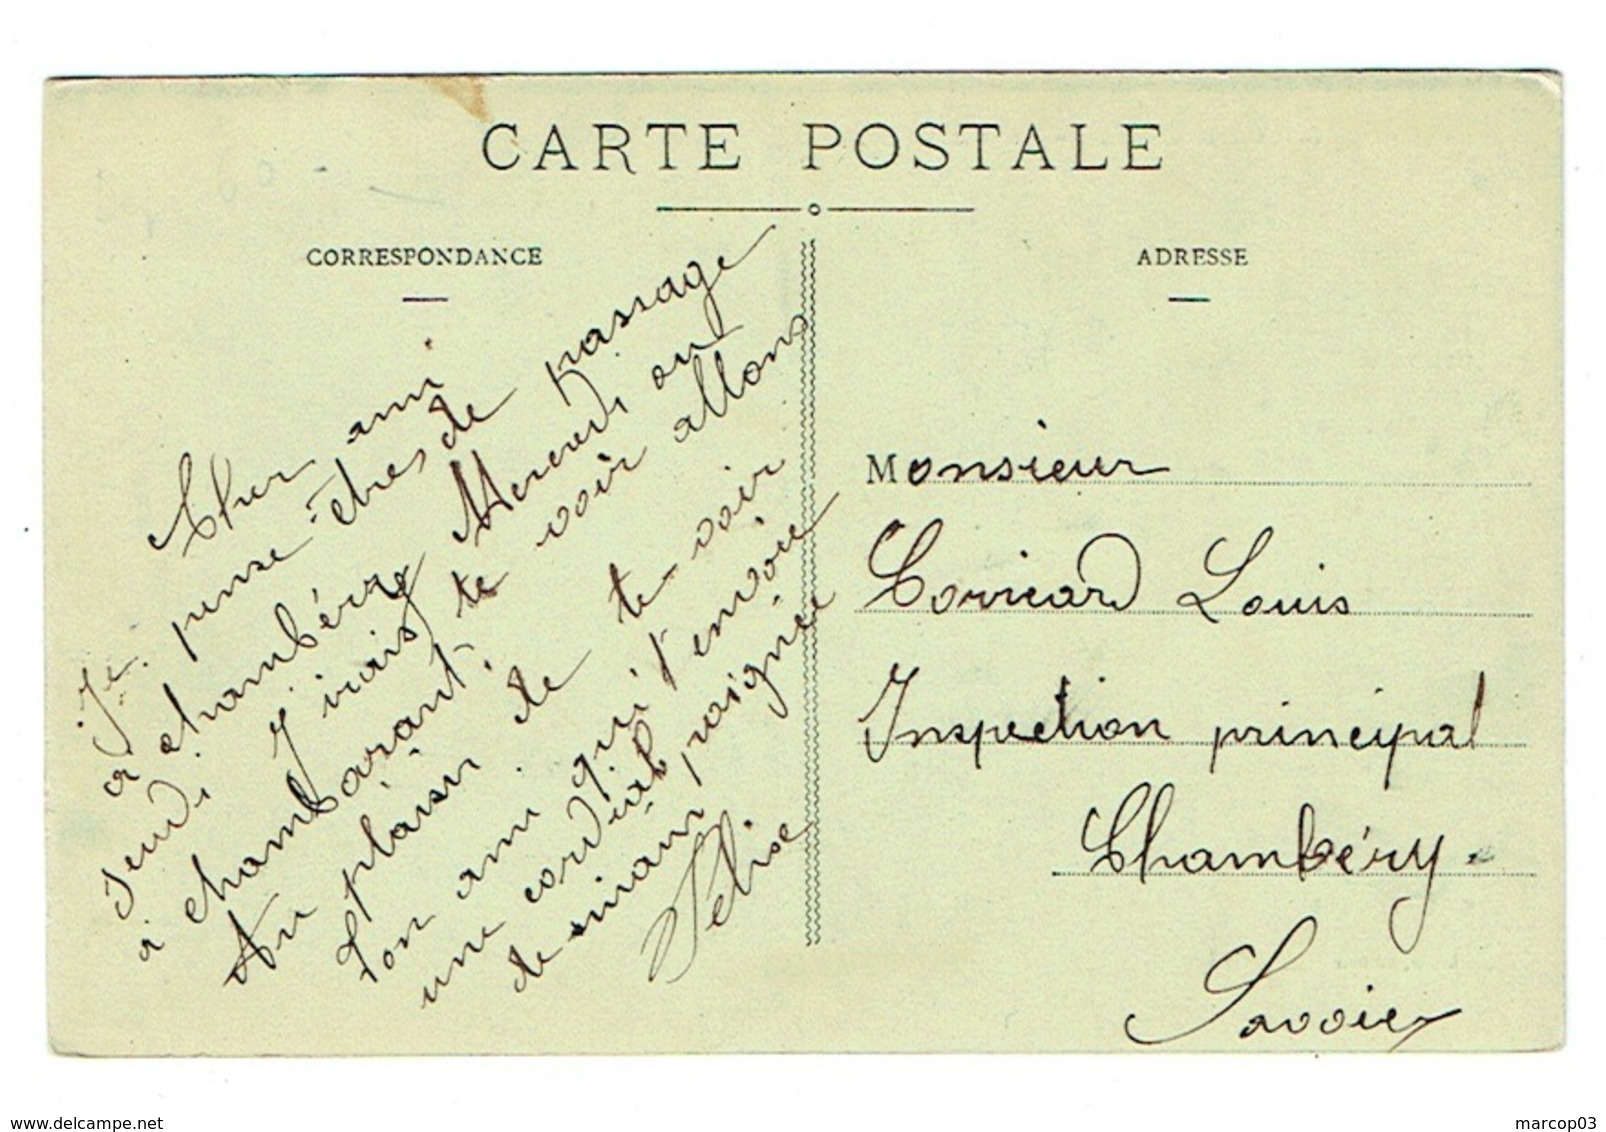 CARTE POSTALE
CORRESPONDANCE
ADRESSE
Cher ami
Je pense êtres de passage
à chambéry Mercredi ou
Jeudi J'irais te voir allons
à chambarant.
Au plaisir de te voir
Ton ami qui t'envoie
une cordial poignée
de main
Félise
Monsieur
Corneard Louis
Inspection principal
Chambéry
Savoie
www.delcampe.net
marcop03